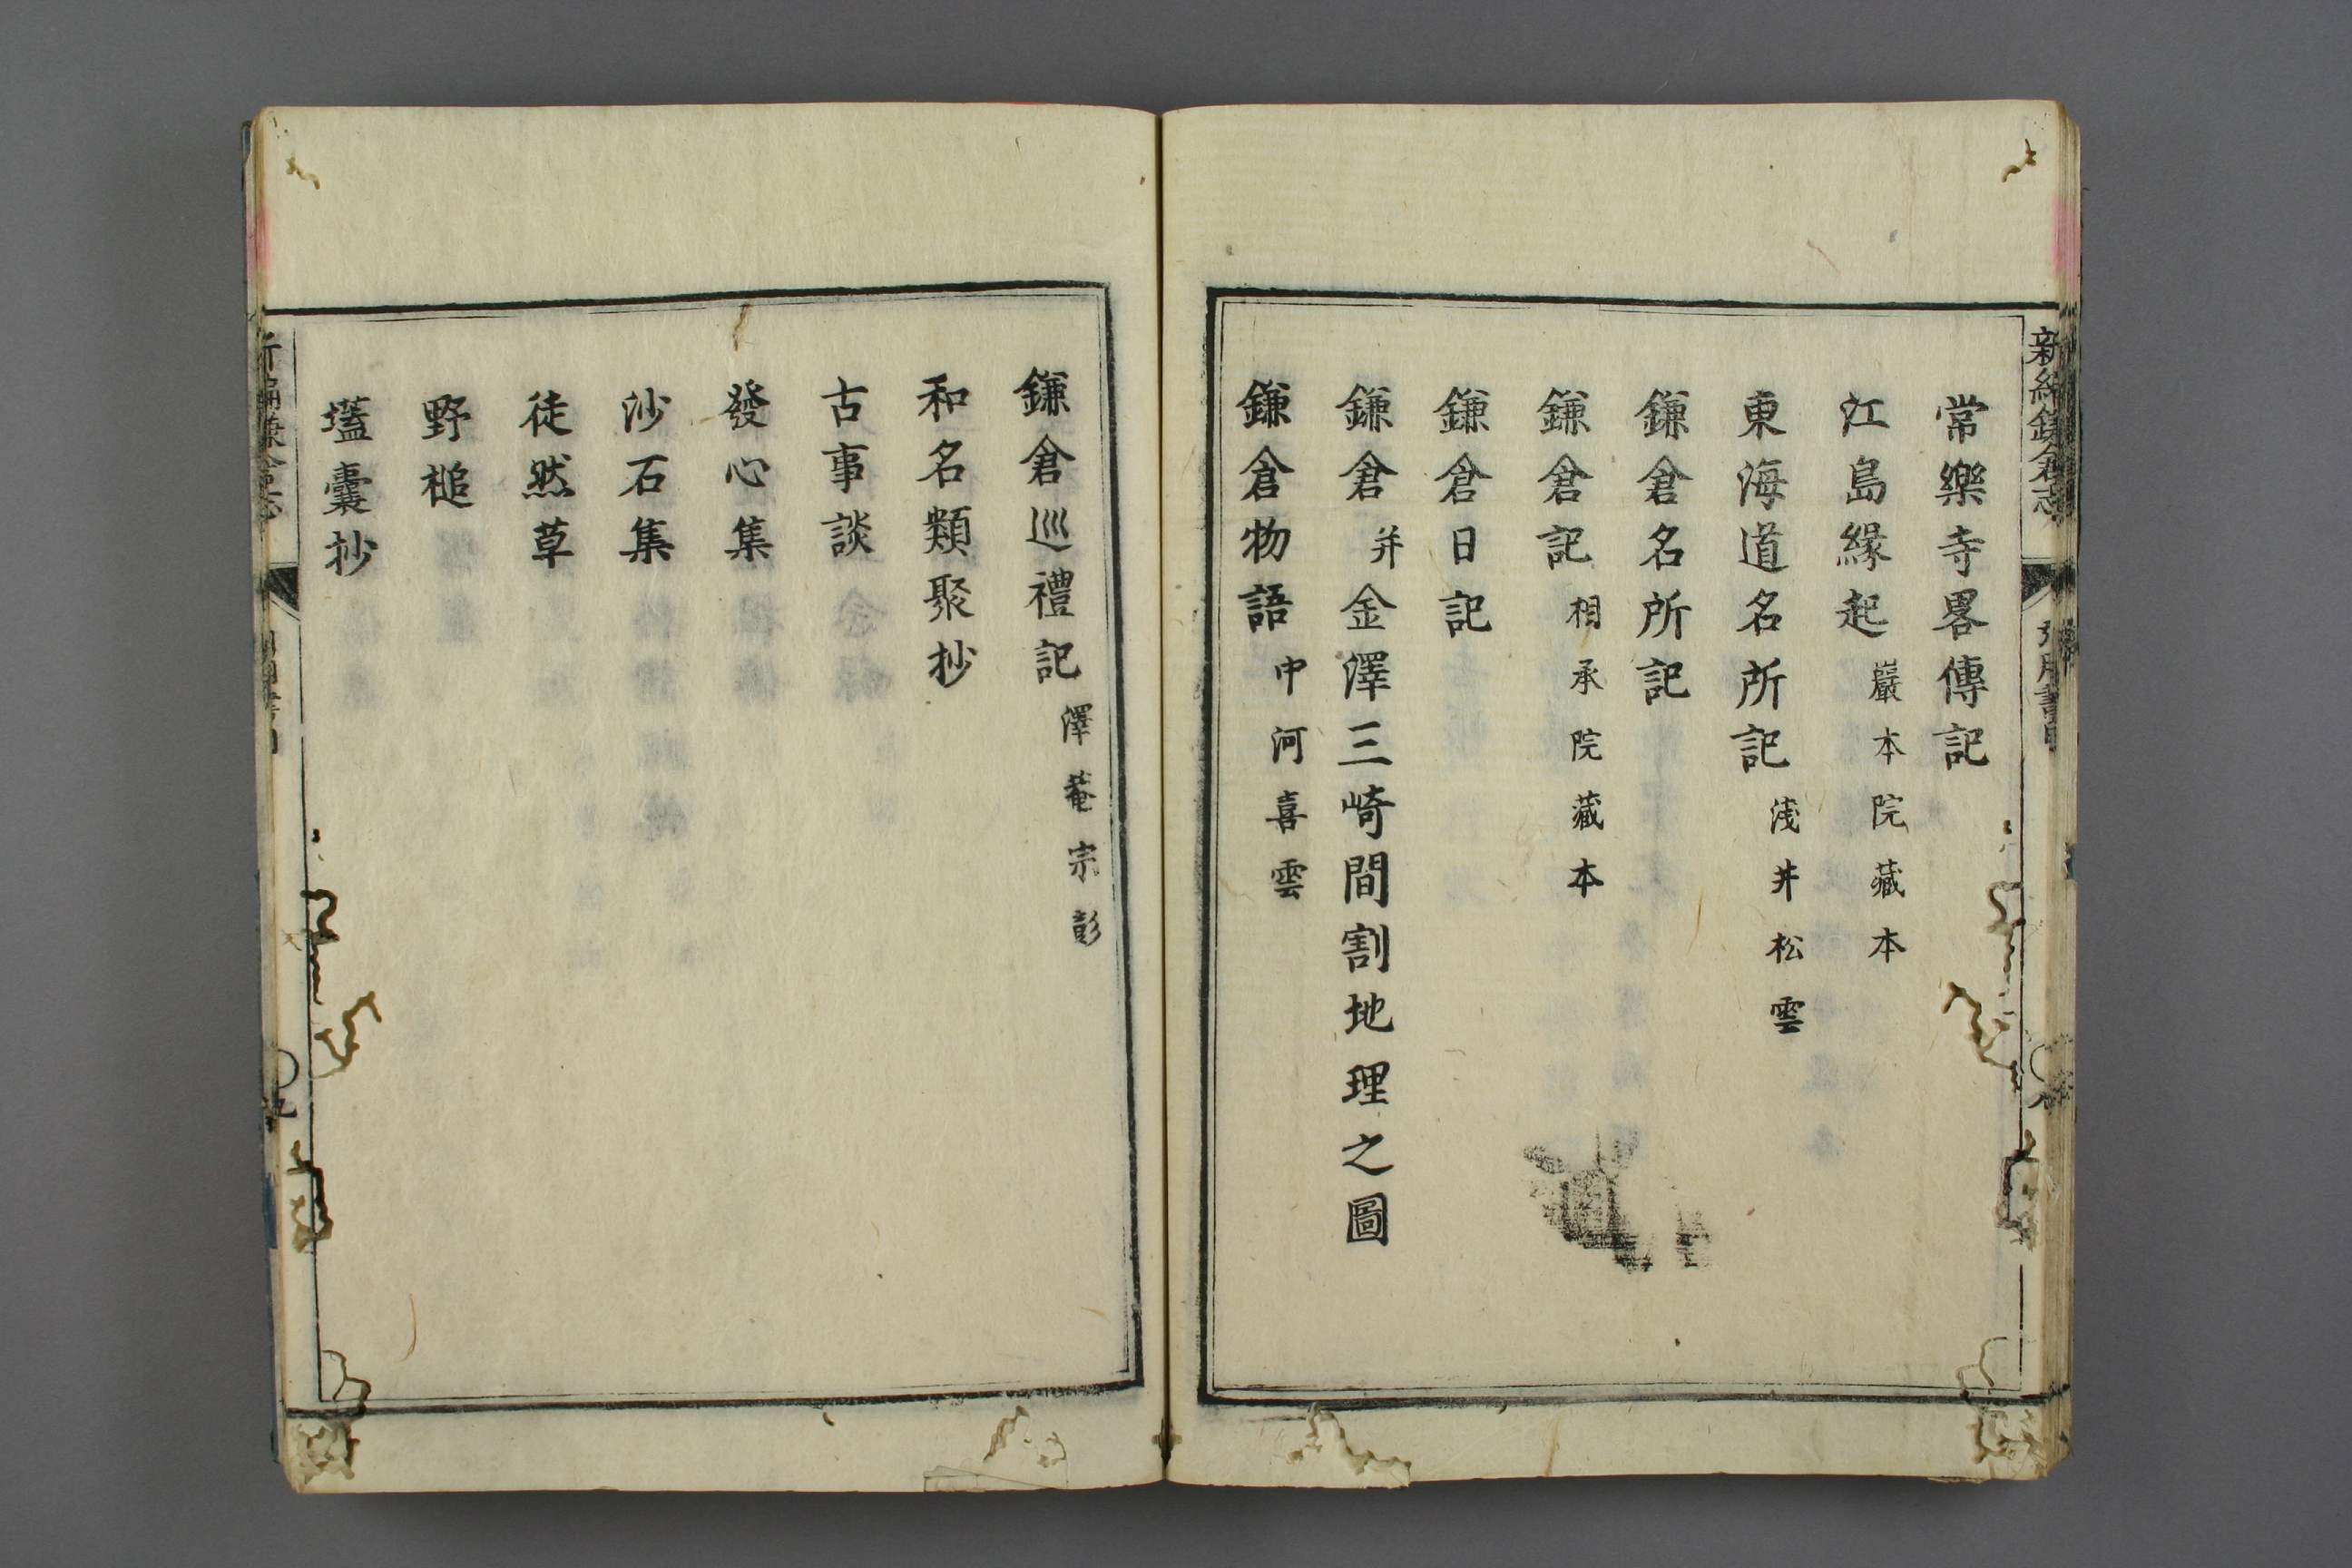 常樂寺畧傳記
江島緣起 巖本院藏本
東海道名所記 淺井松雲
鎌倉名所記
鎌倉記 相承院藏本
鎌倉日記
鎌倉并金澤三崎間割地理之圖
鎌倉物語 中河喜雲
鎌倉巡禮記 澤菴宗彭
和名類聚抄
古事談
發心集
沙石集
徒然草
野槌
壒囊抄